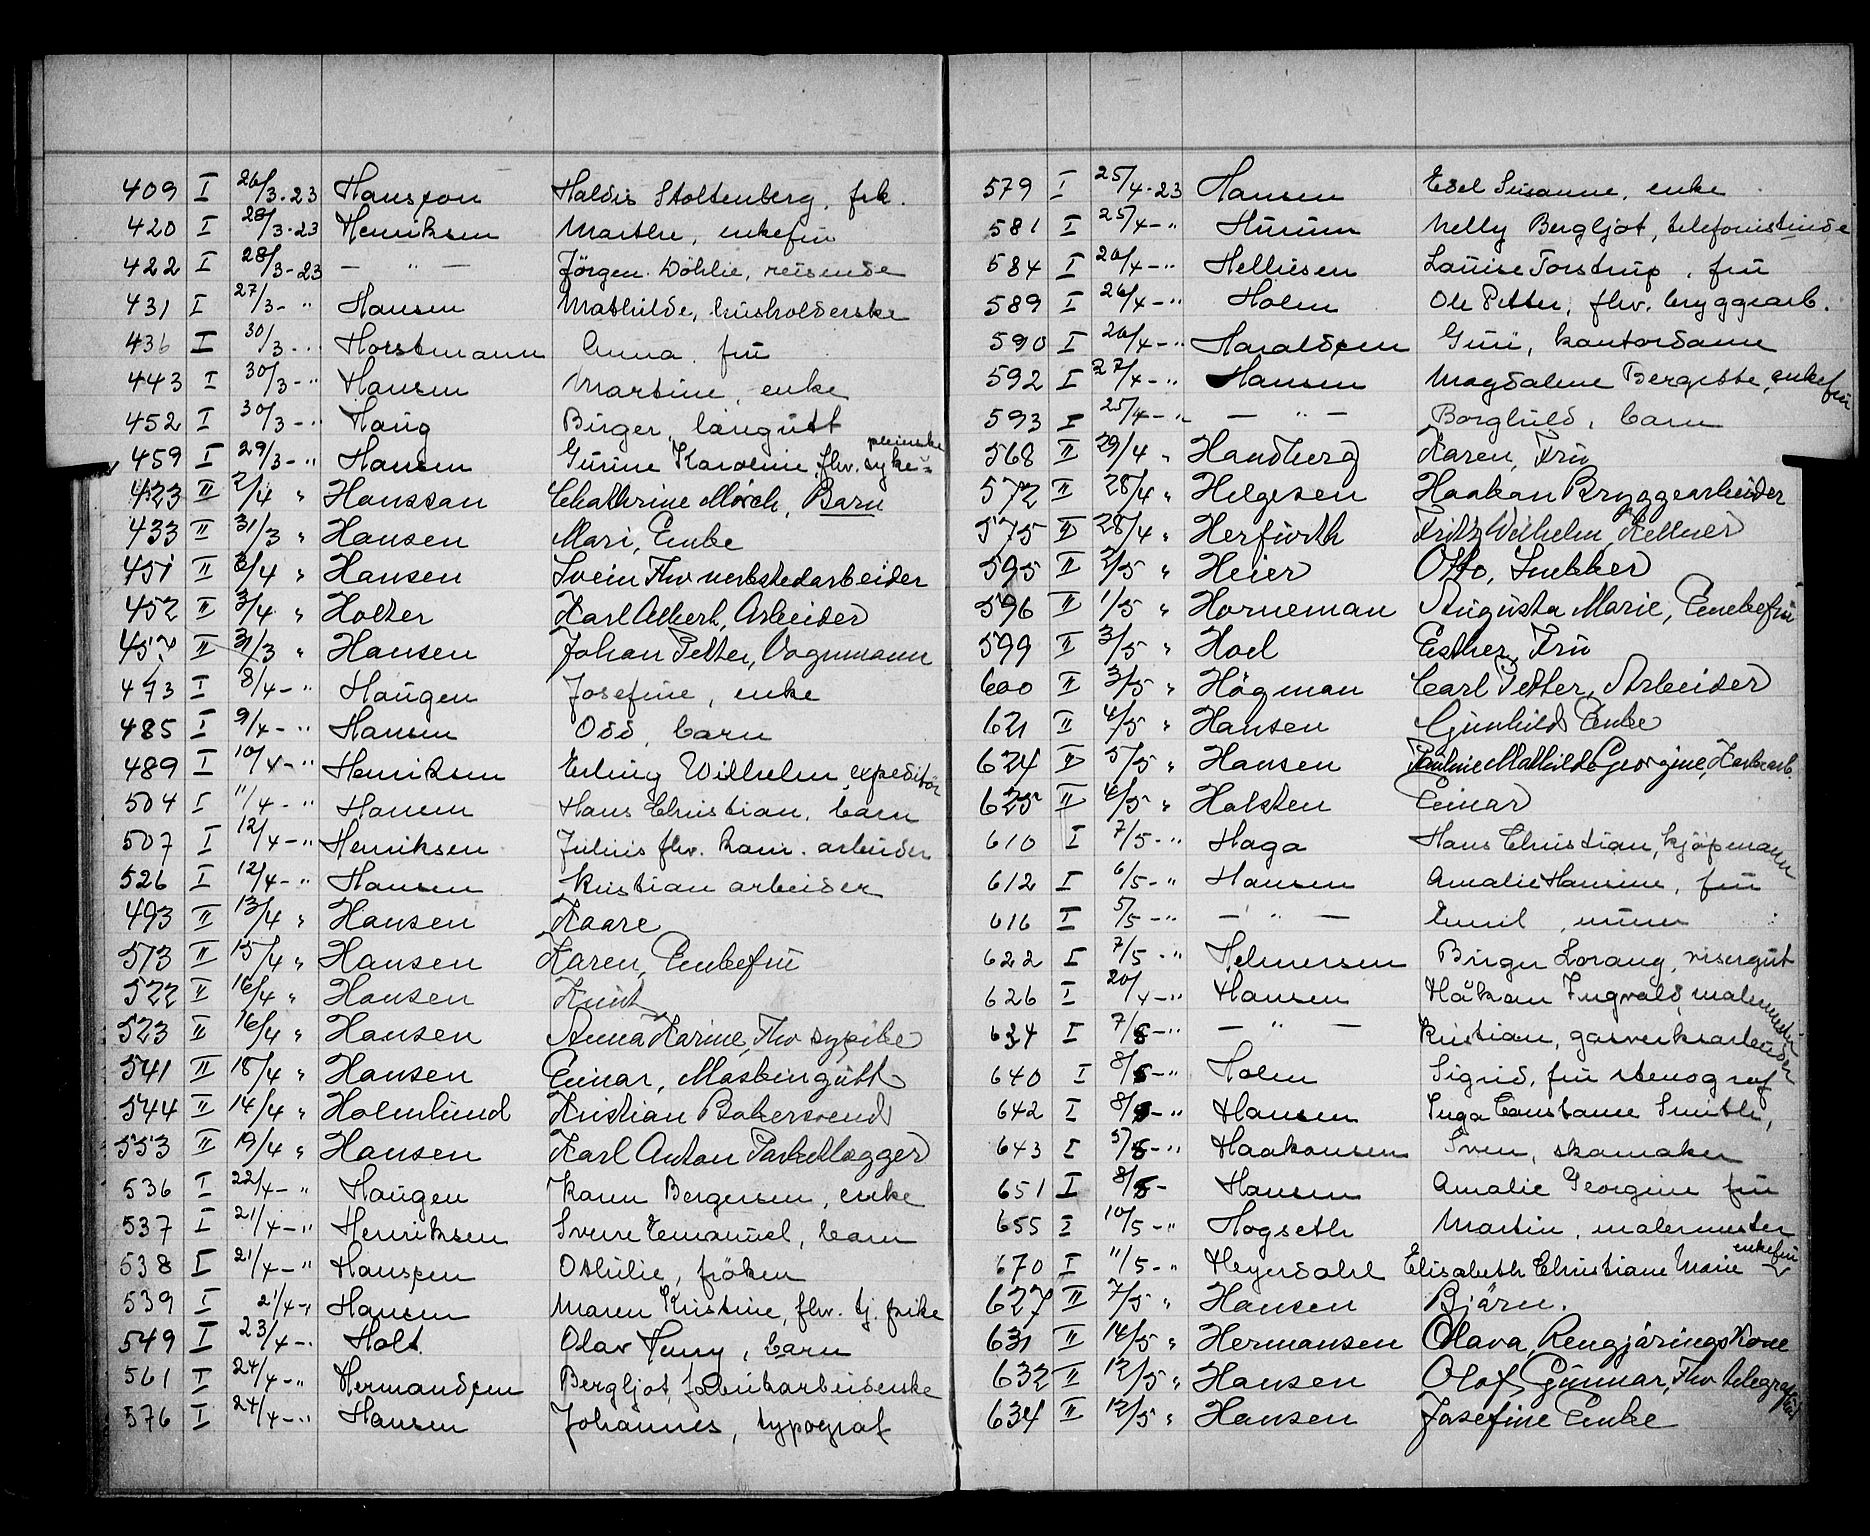 409 I 26/3-23 Hansson Haldis Stoltenberg, frk.
420 I 28/3-23 Henriksen Marthe, enkefru
422 I 28/3-23 — " — Jörgen Döhlie, reisende
431 I 27/3- " Hansen Mathilde, husholderske
436 I 30/3- " Horstmann Anna, fru
443 I 30/3- " Hansen Martine, enke
452 I 30/3- " Haug Birger, laugutt
459 I 29/3- " Hansen Gurine Karoline, fhv. syke- pleierske
423 II 2/4 " Hanssan Chathrine Mörch, Barn
433 II 31/3 " Hansen Mari, Enke
451 II 3/4 " Hansen Svein Fhv verkstedarbeider
452 II 3/4 " Holter Karl Albert, Arbeider
457 II 31/3 " Hansen Johan Petter, Vognmann
473 I 8/4- " Haugen Josefine, enke
485 I 9/4- " Hansen Odd, barn
489 I 10/4- " Henriksen Erling Wilhelm, expeditör
504 I 11/4- " Hansen Hans Christian, barn
507 I 12/4- " Henriksen Julius fhv. kom. arbeider
526 I 12/4- " Hansen Kristian arbeider
493 II 13/4 " Hansen Kaare
513 II 15/4 " Hansen Karen, Enkefru
522 II 16/4 " Hansen Knut
523 II 16/4 " Hansen Anna Karine, Fhv sypike
541 II 18/4 " Hansen Einar, Maskingutt
544 II 14/4 " Holmlund Kristian Bakersvend
553 II 19/4 " Hansen Karl Anton Parketlægger
536 I 22/4- " Haugen Karen Bergersen, enke
537 I 21/4- " Henriksen Sverre Emanuel, barn
538 I 21/4- " Hanssen Othilie, fröken
539 I 21/4- " Hansen Maren Kristine, fhv. tj. pike
549 I 23/4- " Holt Olav Henry, barn
561 I 24/4- " Hermandsen Bergljot, fabrikarbeiderske
576 I 24/4- " Hansen Johannes, typograf
579 I 25/4-23 Hansen Edel Susanne, enke
581 I 25/4- " Hurum Nelly Bergljot, telefonistinde
584 I 26/4- " Helliesen Louise Torstrup, fru
589 I 26/4- " Holm Ole Petter, fhv. bryggearb.
590 I 26/4- " Haraldsen Guri, kontordame
592 I 27/4- " Hansen Magdalene Bergitte, enkefru
593 I 25/4- " — " — Borghild, barn
568 II 29/4 " Handberg Karen, Fru
572 II 28/4 " Helgesen Haakon Bryggearbeider
575 II 28/4 " Herfurth Fritz Wilhelm, Kellner
595 II 2/5 " Heier Otto, Snekker
596 II 1/5 " Horneman Augusta Marie, Enkefru
599 II 3/5 " Hoel Esther, Fru
600 II 3/5 " Högman Carl Petter, Arbeider
621 II 4/5 " Hansen Gunhild Enke
624 II 5/5 " Hansen Pauline Mathilde Georgine,
625 II 4/5 " Holsten Einar
610 I 7/5- " Haga Hans Christian, kjöpmann
612 I 6/5- " Hansen Amalie Hansine, fru
616 I 5/5- " — " — Emil, murer
622 I 7/5- " Helmersen Birger Lorang, visergut
626 I 20/4- " Hansen Håkon Ingvald, malermester
634 I 7/5- " — " — Kristian, gasverksarbeider
640 I 8/5- " Holm Sigrid, fru stenograf
642 I 8/5- " Hansen Inga Constance Smith,
643 I 5/5- " Haakonsen Sven, skomaker
651 I 8/5- Hansen Amalie Georgine fru
655 I 10/5- " Hogseth Martin, malermester
670 I 11/5- " Heyerdahl Elisabeth Christiane Marie enkefru
627 II 7/5 " Hansen Bjärn.
631 II 14/5 " Hermansen Olava, Rengjäringskone
632 II 12/5 " Hansen Olof Gunnar, Fhv telegrafbud
634 II 12/5 " Hansen Josefine Enke